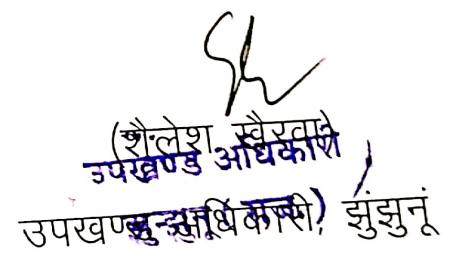 (शैलेश खैरवा)
उपखण्ड अधिकारी
उपखण्ड अधिकारी, झुंझुनूं